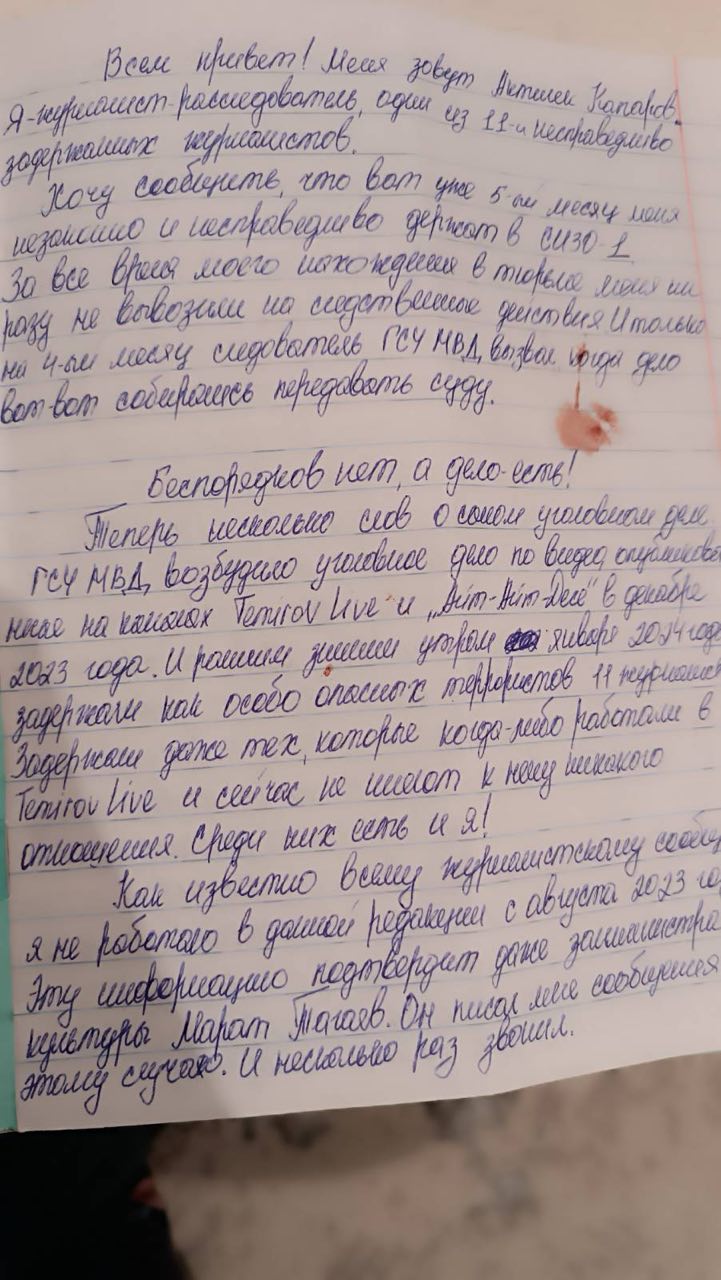 Всем привет! Меня зовут Актилек Капаров.
Я-журналист-расследователь, один из 11-и несправедливо
задержанных журналистов.
Хочу сообщить, что вот уже 5-ый месяц меня
незаконно и несправедливо держат в СИЗО-1
За все время моего нахождения в тюрьме меня ни
разу не вывозили на следственные действия И только
на 4-ый месяц следователь ГСУ МВД вызвал когда дело
вот-вот собирались передавать суду.
Беспорядков нет, а дело-есть!
Теперь несколько слов о самом уголовном деле
ГСУ МВД, возбудило уголовное дело по видео, опубликова
ные на каналах Temirov Live и „Ait-Ait-Dese" в декабре
2023 года. И ранним зимним утром января 2024 года
задержали как особо опасных террористов 11 журналис
Задержали даже тех, которые когда-либо работали в
Temirov Live и сейчас не имеют к нему никакого
отношения. Среди них есть и я!
Как известно всему журналистскому сообщ
я не работаю в данной редакции с августа 2023 го
Эту информацию подтвердит даже замминистра
культуры Марат Тагаев. Он писал мне сообщения
этому случаю. И несколько раз звонил.